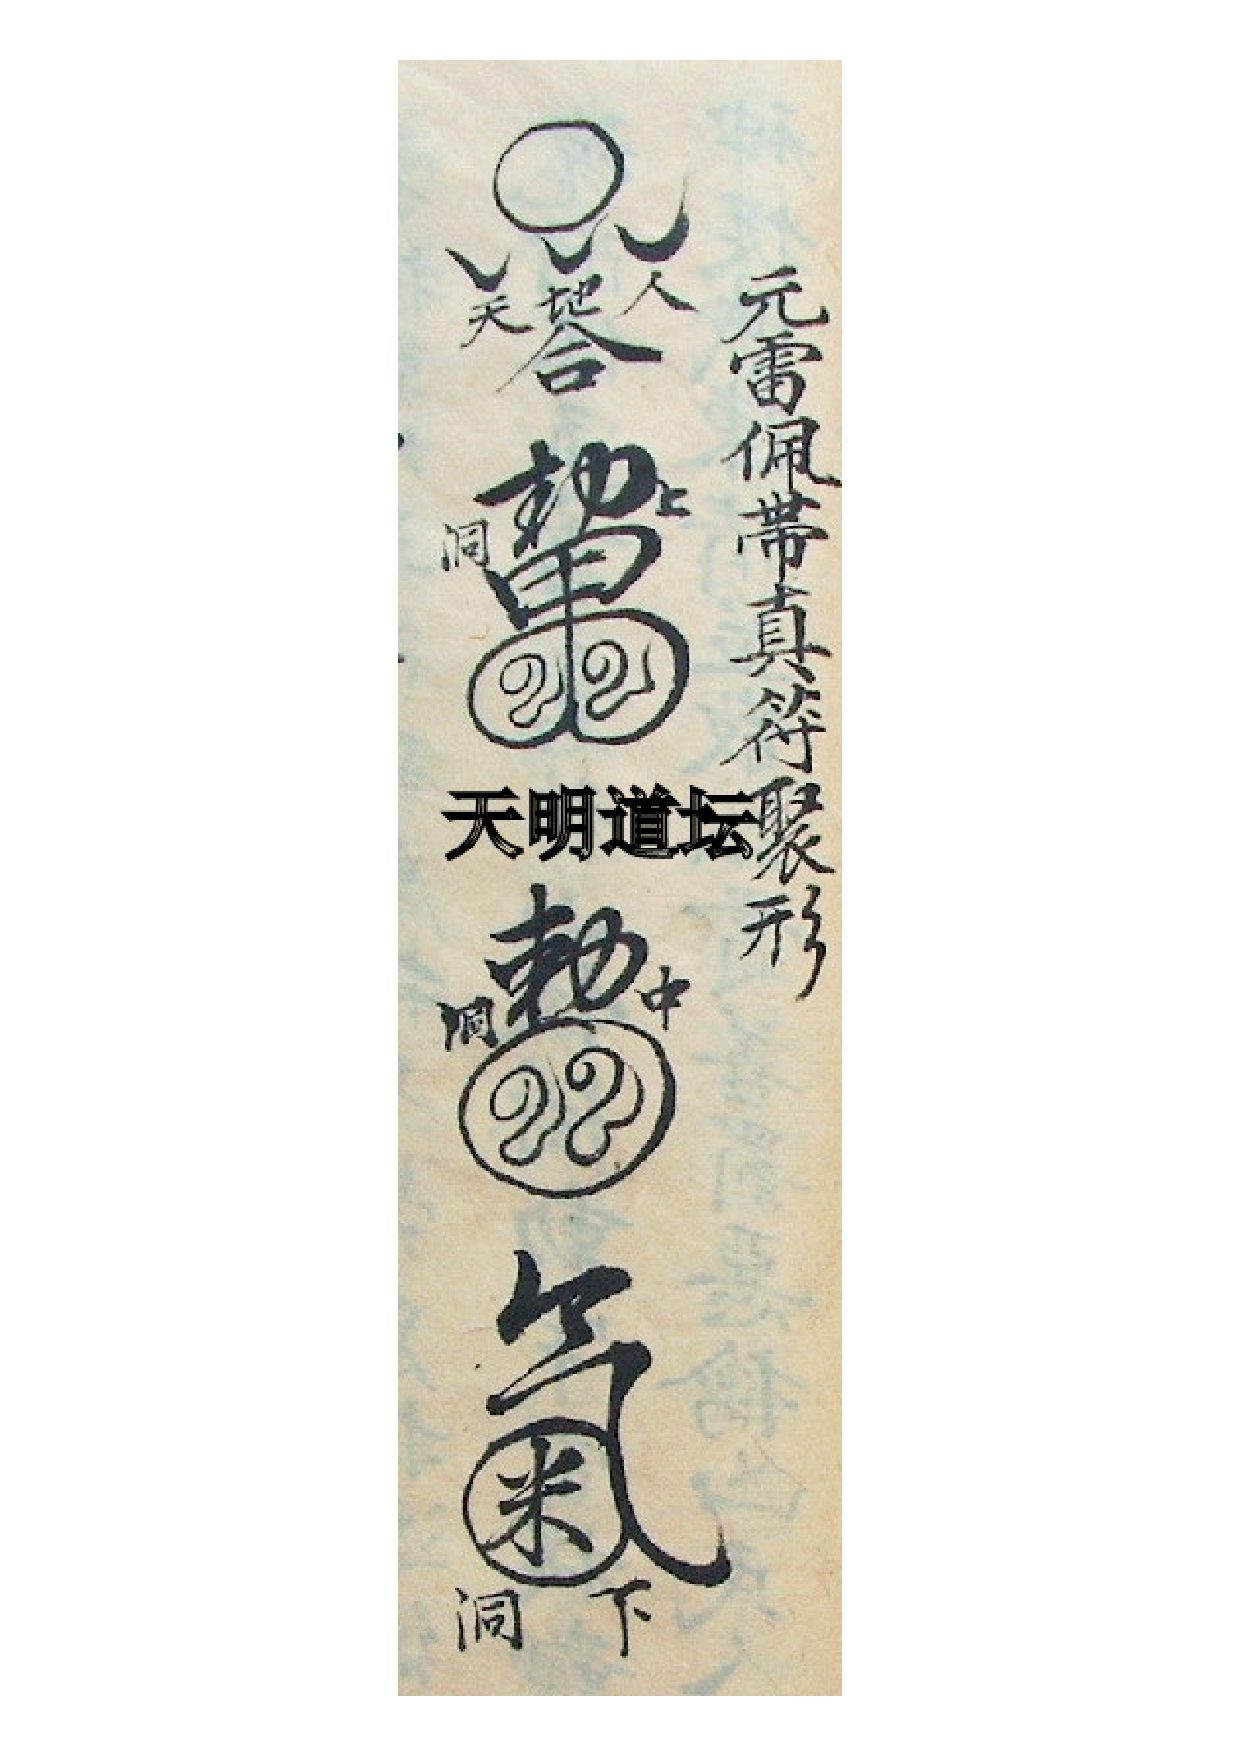 元雷佩帶真符聚形
人 地 天
合
勅
上 洞
天明道坛
勅
中 洞
氣
下 洞